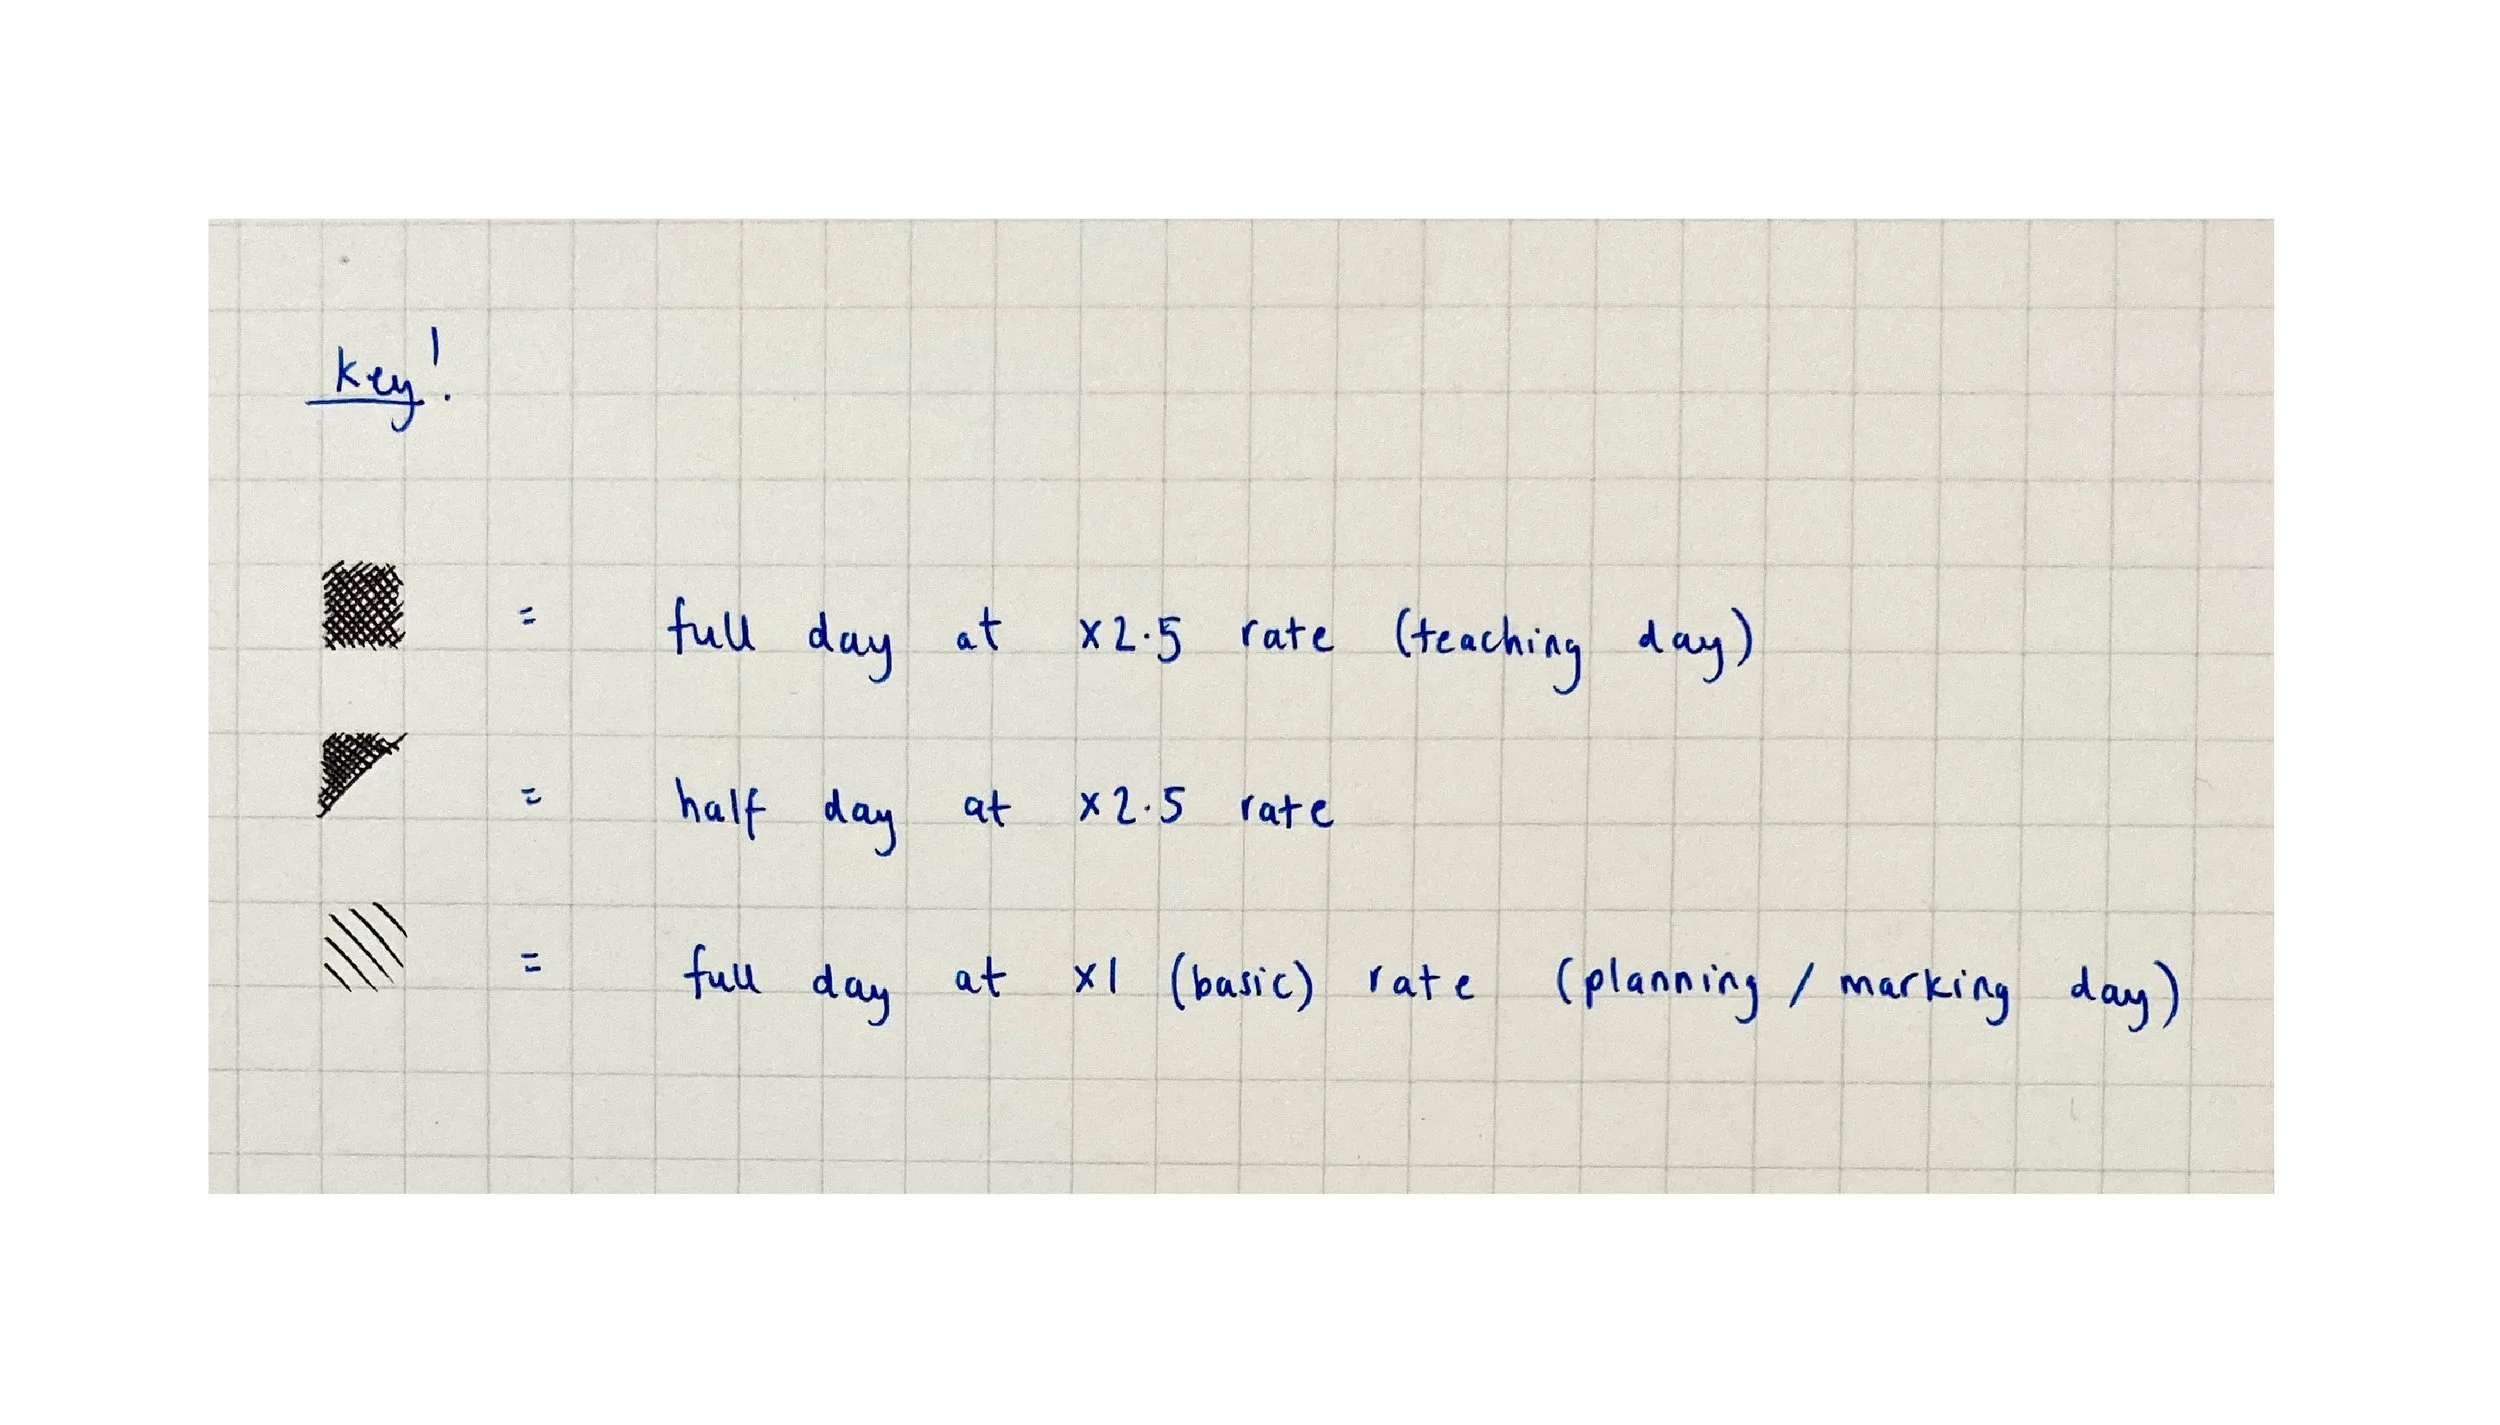 key!
= full day at x2.5 rate (teaching day)
= half day at x2.5 rate
= full day at x1 (basic) rate (planning / marking day)